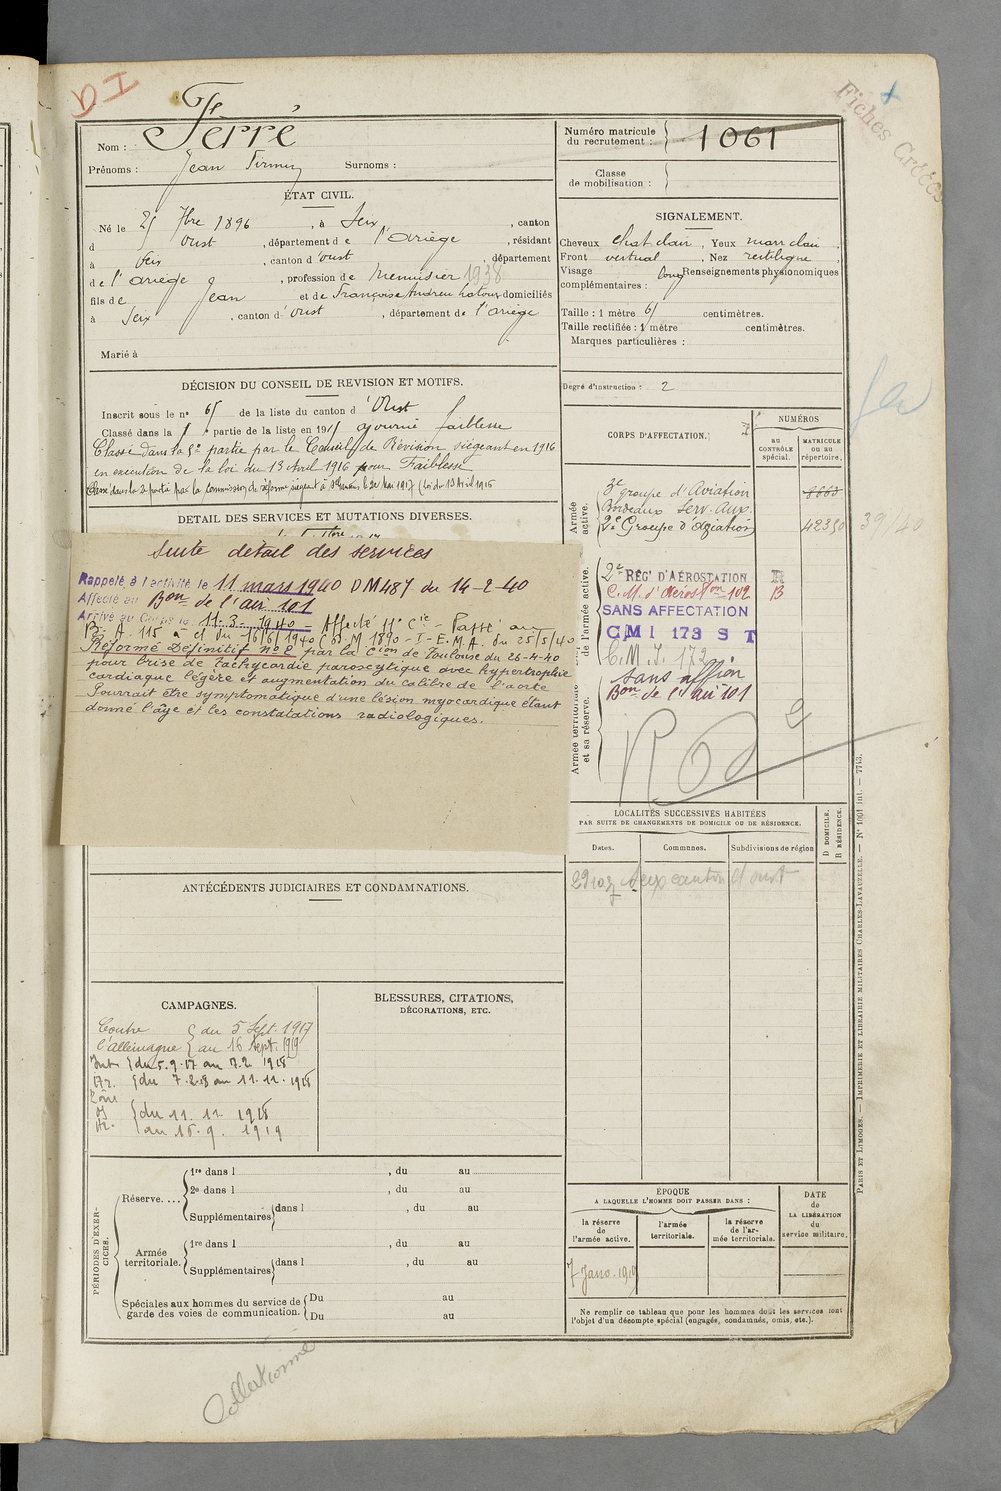 Fiches Créées
Nom : Ferré
Prénoms : Jean Firmin Surnoms :
Numéro matricule
du recrutement : 1061
Classe
de mobilisation :
ÉTAT CIVIL.
Né le 25 7bre 1896, à Seix, canton
d Oust, département de l'Ariège, résidant
à Seix, canton d'Oust, département
de l'Ariège, profession de Menuisier 1938
fils de Jean et de Françoise Andreu Latour domiciliés
à Seix, canton d'Oust, département de l'Ariège
Marié à
SIGNALEMENT.
Cheveux chat clair, Yeux marr clair,
Front vertical, Nez rectiligne,
Visage long Renseignements physionomiques
complémentaires :
Taille : 1 mètre 61 centimètres.
Taille rectifiée : 1 mètre centimètres.
Marques particulières :
Degré d'instruction : 2
DÉCISION DU CONSEIL DE REVISION ET MOTIFS.
Inscrit sous le n° 65 de la liste du canton d'Oust
Classé dans la 5e partie de la liste en 1915 ajourné faiblesse
Classé dans la 5e partie par le Conseil de Révision siégeant en 1916
en exécution de la loi du 13 Avril 1916 pour Faiblesse
Classé dans la 2e partie par la commission de réforme siégeant à le 2 Mai 1917 (loi du 13 Avril 1916
DETAIL DES SERVICES ET MUTATIONS DIVERSES.
Suite détail des services
Rappelé à l'activité le 11 mars 1940 DM 487 du 14-2-40
Affecté au Bon de l'air 101
Arrivé au Corps le 11-3-1940 = Affecté 11e Cie - Passé au
B. A. 115 à ct du 16/6/1940 (D. M 1890 - I - E. M. A. du 25/5/40
Réformé Définitif n° 2 par la Cion de Toulouse du 26-4-40
pour Crise de Tachycardie paroxystique avec hypertrophie
cardiaque légère et augmentation du calibre de l'aorte
Pourrait être symptomatique d'une lésion myocardique étant
donné l'âge et les constatations radiologiques.
CORPS D'AFFECTATION.
NUMÉROS
AU CONTRÔLE spécial.
MATRICULE ou au répertoire.
Armée active.
3e groupe d'Aviation 8663
Bordeaux Serv. Aux.
2e Groupe d'Aviation 42350 39/40
de l'armée active.
2e RÉG' D'AÉROSTATION R
C. M. d'Aéros Ton 102 B
SANS AFFECTATION
CMI 173 S T
C.M.I. 172
sans affion
Bon de l'air 101
Armée territoriale et sa réserve.
R D 2
LOCALITÉS SUCCESSIVES HABITÉES
PAR SUITE DE CHANGEMENTS DE DOMICILE OU DE RÉSIDENCE.
Dates. Communes. Subdivisions de région
D DOMICILE.
R RÉSIDENCE.
Seix canton d'oust
ANTÉCÉDENTS JUDICIAIRES ET CONDAMNATIONS.
CAMPAGNES.
Contre { du 5 Sept. 1917
l'Allemagne { au 16 Sept. 1919
Intr {du 5.9.17 au 7.2.1918
Az. {du 7.2.18 au 11.11.1918
Zône {du 11.11.1918
au 16.9.1919
BLESSURES, CITATIONS,
DÉCORATIONS, ETC.
PÉRIODES D'EXERCICES.
Réserve....
1re dans l , du au
2e dans l , du au
Supplémentaires dans l , du au
Armée territoriale.
1re dans l , du au
Supplémentaires dans l , du au
Spéciales aux hommes du service de
garde des voies de communication.
Du au
Du au
ÉPOQUE
A LAQUELLE L'HOMME DOIT PASSER DANS :
la réserve de l'armée active.
l'armée territoriale.
la réserve de l'armée territoriale.
DATE DE LA LIBÉRATION du service militaire.
7 Janv. 1919
Ne remplir ce tableau que pour les hommes dont les services sont
l'objet d'un décompte spécial (engagés, condamnés, omis, etc.).
PARIS ET LIMOGES. — IMPRIMERIE ET LIBRAIRIE MILITAIRES CHARLES-LAVAUZELLE. — N° 1001 int. — 7713.
Collationné